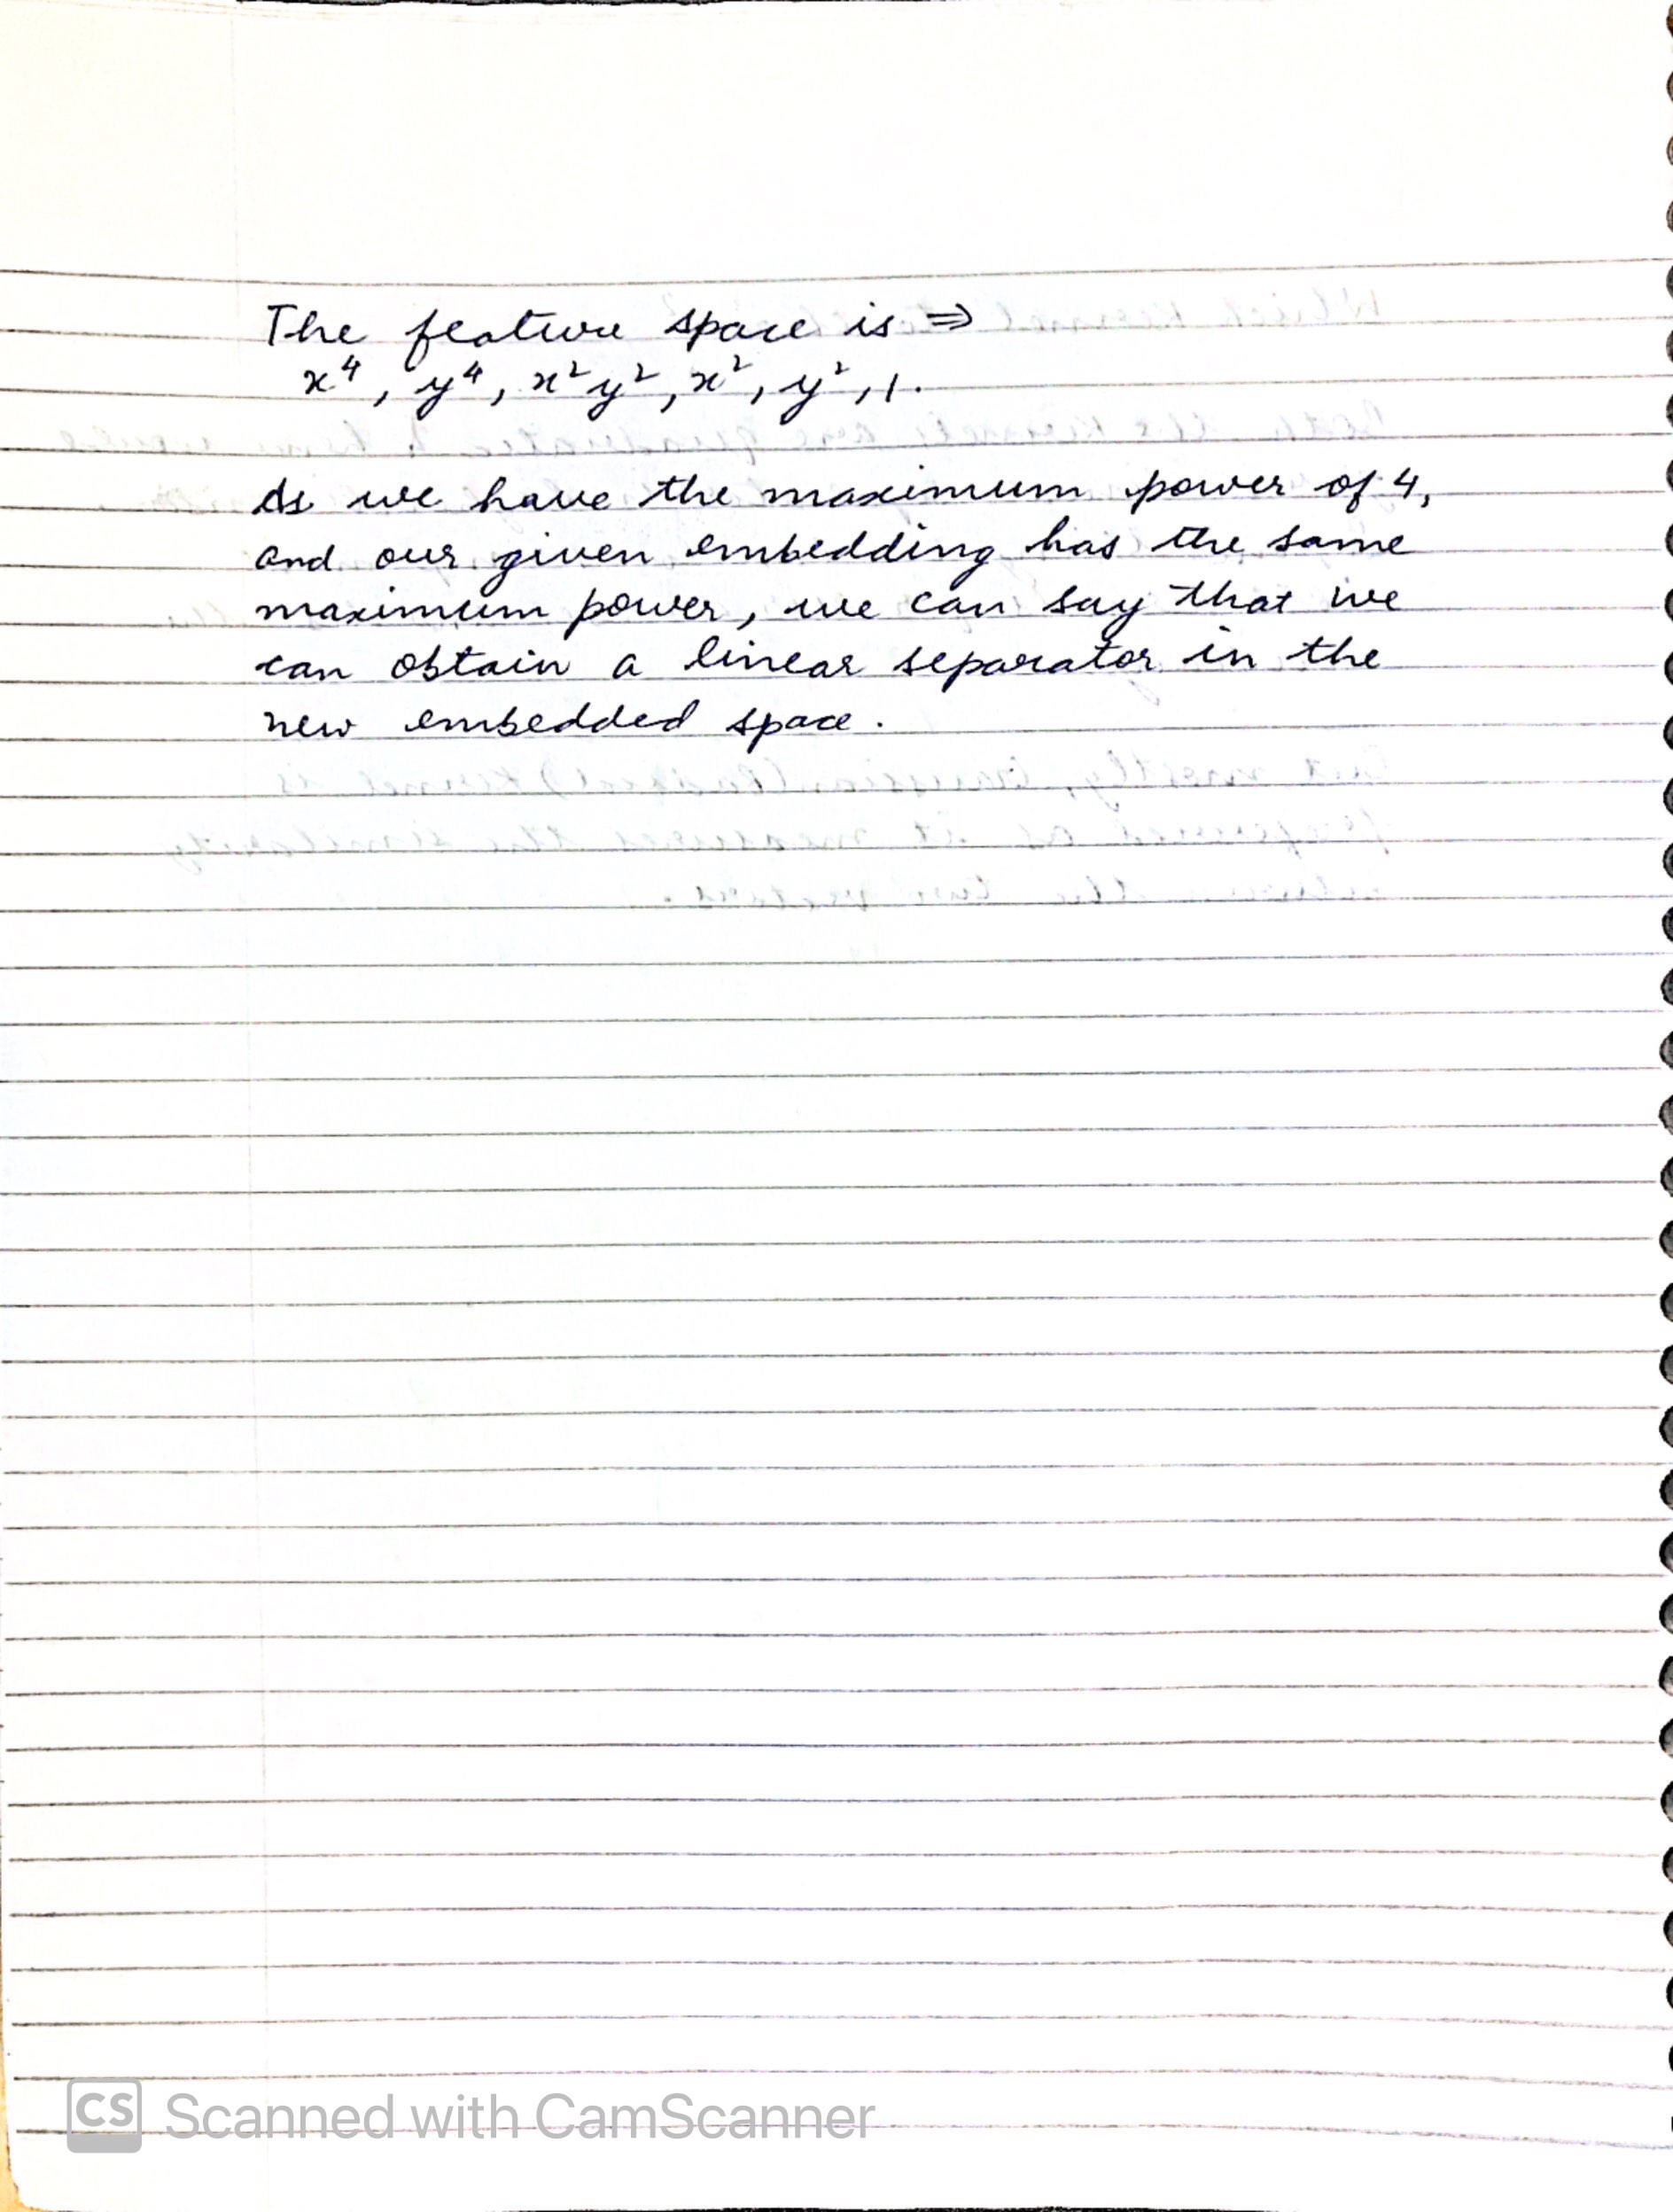 The feature space is ⇒
x⁴, y⁴, x²y², x², y², 1.
As we have the maximum power of 4,
and our given embedding has the same
maximum power, we can say that we
can obtain a linear separator in the
new embedded space.
CS Scanned with CamScanner